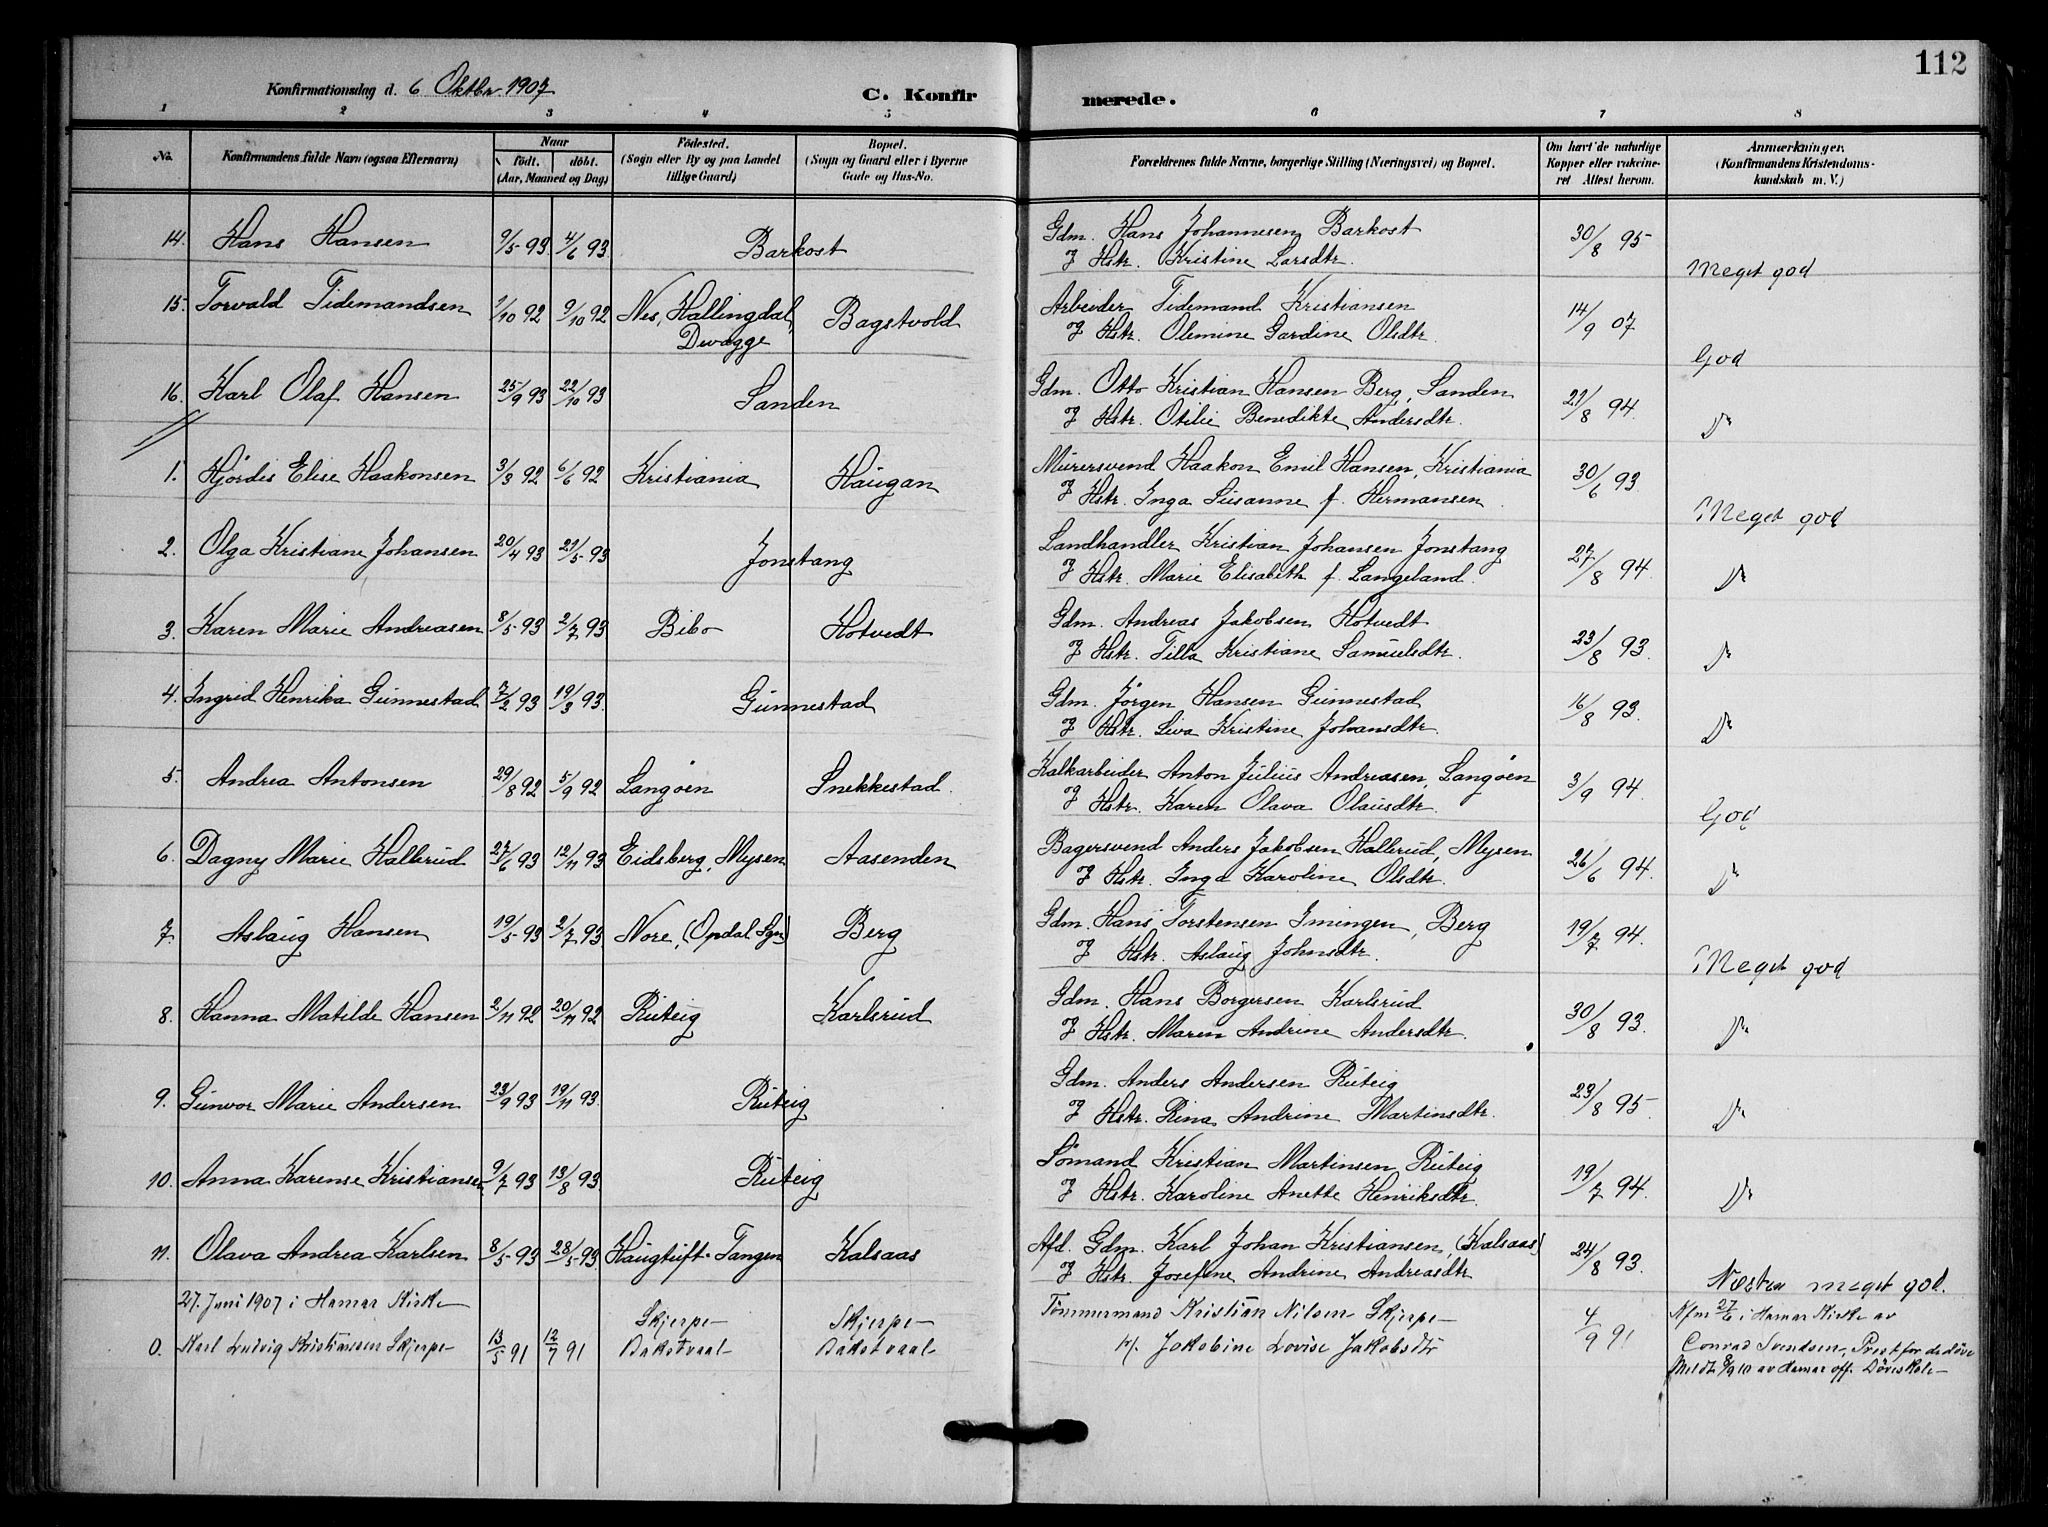 112
Konfirmationsdag d. 6 Oktbr. 1907
C. Konfirmerede.
1 2 3 4 5 6 7 8
No.
Konfirmandens fulde Navn (ogsaa Efternavn)
Naar
födt. döbt.
(Aar, Maaned og Dag)
Födested.
(Sogn eller By og paa Landet
tillige Gaard)
Bopæl.
(Sogn og Gaard eller i Byerne
Gade og Hus-No.
Forældrenes fulde Navne, borgerlige Stilling (Næringsvei) og Bopæl.
Om havt de naturlige
Kopper eller vakcine-
ret Attest herom.
Anmærkninger.
(Konfirmandens Kristendoms-
kundskab m. V.)
14. Hans Hansen 9/5 93 4/6 93 Barkost Gdm. Hans Johannesen Barkost 30/8 95
og Hstr. Kristine Larsdtr. Meget god
15. Torvald Tidemandsen 1/10 92 9/10 92 Nes, Hallingdal, Bagstvold Arbeider Tidemand Kristiansen 14/9 07
Devegge og Hstr. Olemine Gardine Olsdtr. God
16. Karl Olaf Hansen 25/9 93 22/10 93 Sanden Gdm. Otto Kristian Hansen Berg, Sanden 21/8 94.
og Hstr. Otilie Benedikte Andersdtr. Do
1. Hjördis Elise Haakonsen 3/3 92 6/6 92 Kristiania Haugan Murersvend Haakon Emil Hansen, Kristiania 30/6 93.
og Hstr. Inga Susanne f. Hermansen. Meget god
2. Olga Kristiane Johansen 20/4 93 21/5 93 Jonstang Landhandler Kristian Johansen Jonstang 27/8 94.
og Hstr. Marie Elisabeth f. Langeland. Do
3. Karen Marie Andreasen 8/5 93 2/7 93 Bibo Hotvedt Gdm. Andreas Jakobsen Hotvedt 23/8 93.
og Hstr. Tilla Kristiane Samuelsdtr. Do
4. Ingrid Henrika Gunnestad 7/2 93 19/3 93. Gunnestad Gdm. Jörgen Hansen Gunnestad 16/8 93.
og Hstr. Liva Kristine Johansdtr. Do
5. Andrea Antonsen 29/8 92 5/9 92 Langöen Snekkestad. Kalkarbeider Anton Julius Andreasen, Langöen 3/9 94.
og Hstr. Karen Olava Olausdtr. God
6. Dagny Marie Hallerud 27/6 93 12/11 93 Eidsberg, Mysen Aasenden Bagersvend Anders Jakobsen Hallerud, Mysen 26/6 94.
og Hstr. Inga Karoline Olsdtr. Do
7. Aslaug Hansen 19/5 93 2/7 93 Nore, (Opdal Sgn) Berg Gdm. Hans Torstensen Imingen, Berg 19/7 94.
og Hstr. Aslaug Johnsdtr. Meget god
8. Hanna Matilde Hansen 2/11 92 20/11 92 Ruteig Karlsrud Gdm. Hans Borgersen Karlsrud 30/8 93.
og Hstr. Maren Andrine Andersdtr. Do
9. Gunvor Marie Andersen 23/9 93 19/11 93. Ruteig Gdm. Anders Andersen Ruteig 23/8 95.
og Hstr. Rina Andrine Martinsdtr. Do
10. Anna Karense Kristiansen 9/7 93 13/8 93 Ruteig Sömand Kristian Martinsen Ruteig 19/7 94.
og Hstr. Karoline Anette Henriksdtr. Do
11. Olava Andrea Karlsen 8/5 93 28/5 93 Haugtuft-Tangen Kalsaas Afd. Gdm. Karl Johan Kristiansen, (Kalsaas) 24/8 93.
og Hstr. Josefine Andrine Andreasdtr Næsten meget god.
27. Juni 1907 i Hamar Kirke Skjerpe Skjerpe Tömmermand Kristian Nilsen Skjerpe 4/9 91 Kfm 27/6 i Hamar Kirke av
0. Karl Ludvig Kristiansen Skjerpe 13/5 91 12/7 91 Bakstvaal Bakstvaal H. Jakobine Lovise Jakobsdtr Conrad Svendsen, Prest for de döve
Meldt 8/9 10 av Hamar off. Döveskole